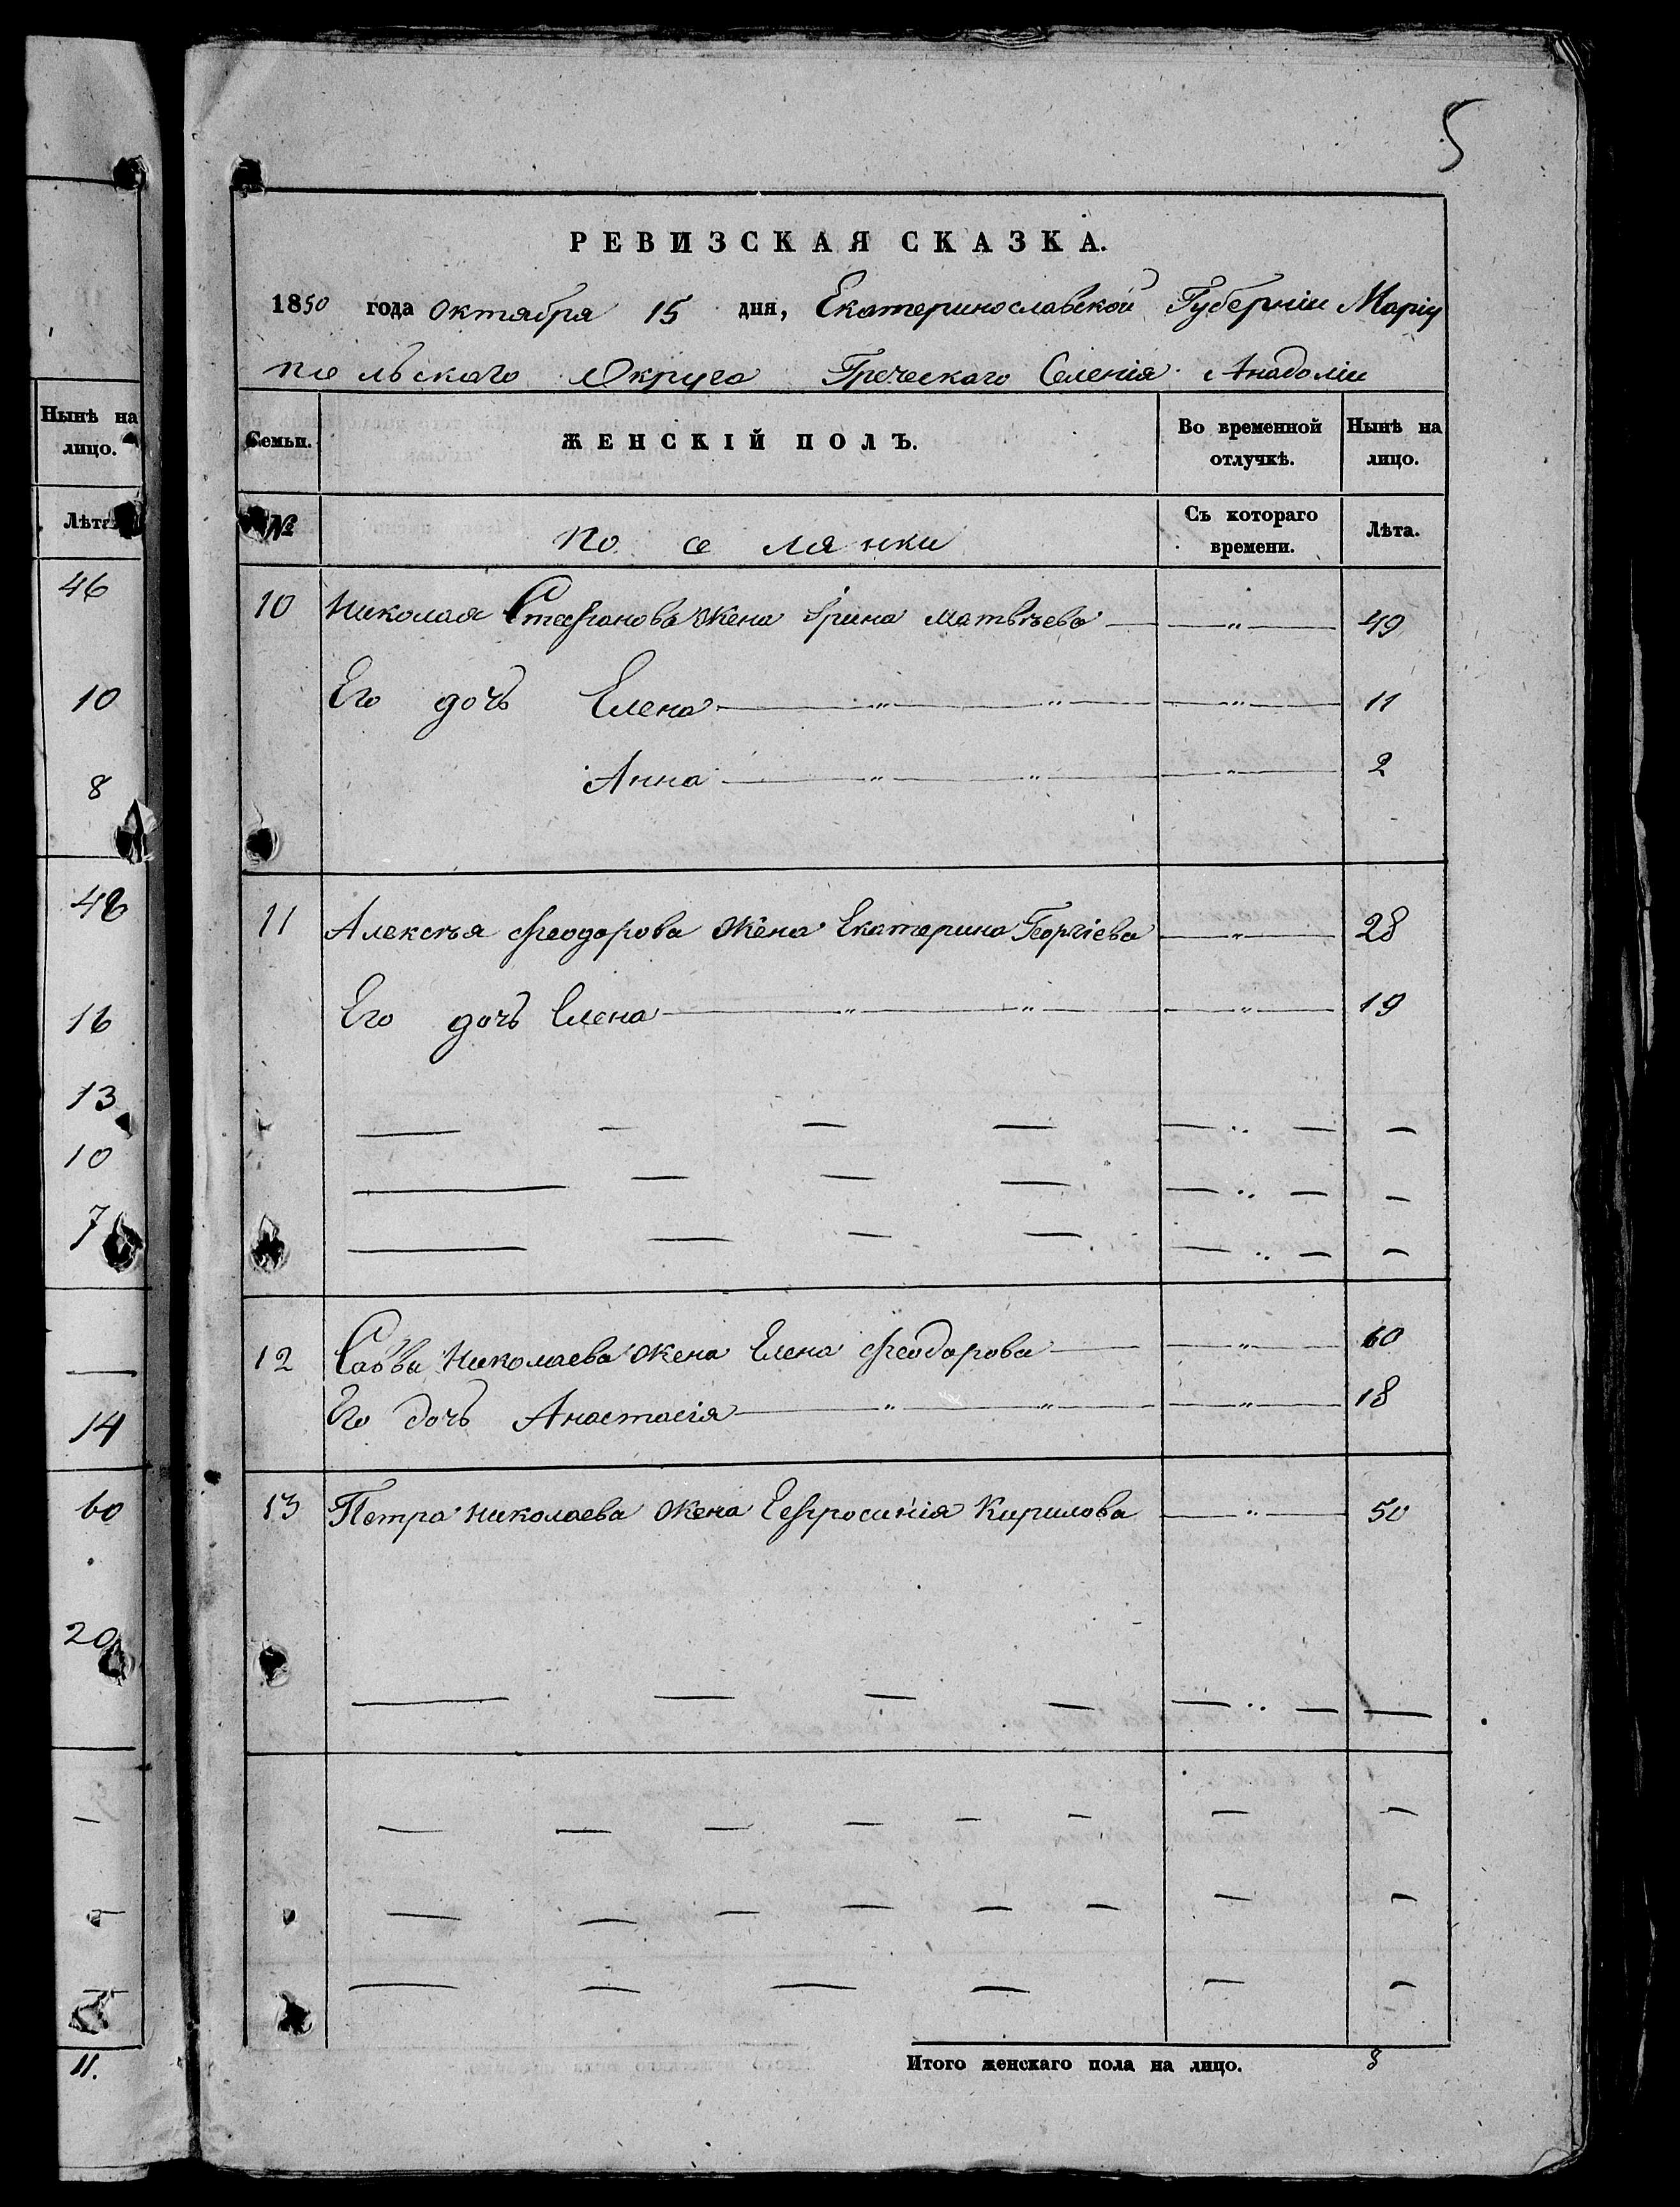 5
РЕВИЗСКАЯ СКАЗКА.
1850 года Октября 15 дня, Екатеринославской Губерніи Маріу
польского Округа Греческаго Селенія Анадоліи
Нынѣ на лицо.
Лѣта
46
10
8
48
16
13
10
7
14
60
20
11.
Семьи. ЖЕНСКІЙ ПОЛЪ. Во временной отлучкѣ. Нынѣ на лицо.
№ По се лянки Съ котораго времени. Лѣта.
10 Николая Стефанова жена Ірина Матвѣева — " — 49
Его дочь Елена — " — " — " — 11
Анна — " — " — " — 2
11 Алексѣя Феодорова жена Екатерина Георгіева — " — 28
Его дочь Елена — " — " — " — 19
12 Саввы Николаева жена Елена Феодорова — " — 60
Его дочь Анастасія — " — " — " — 18
13 Петра Николаева жена Евфросинія Кирилова — " — 50
Итого женскаго пола на лицо. 8